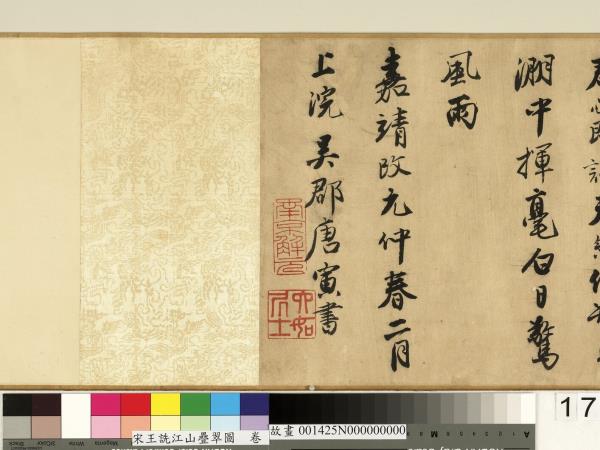 中揮毫白日驚
風雨
嘉靖改元仲春二月
上浣吳郡唐寅書
南京解元
六如居士
17
宋王詵江山疊翠圖 卷
故畫 001425N000000000
Black
3/Color
White
Magenta